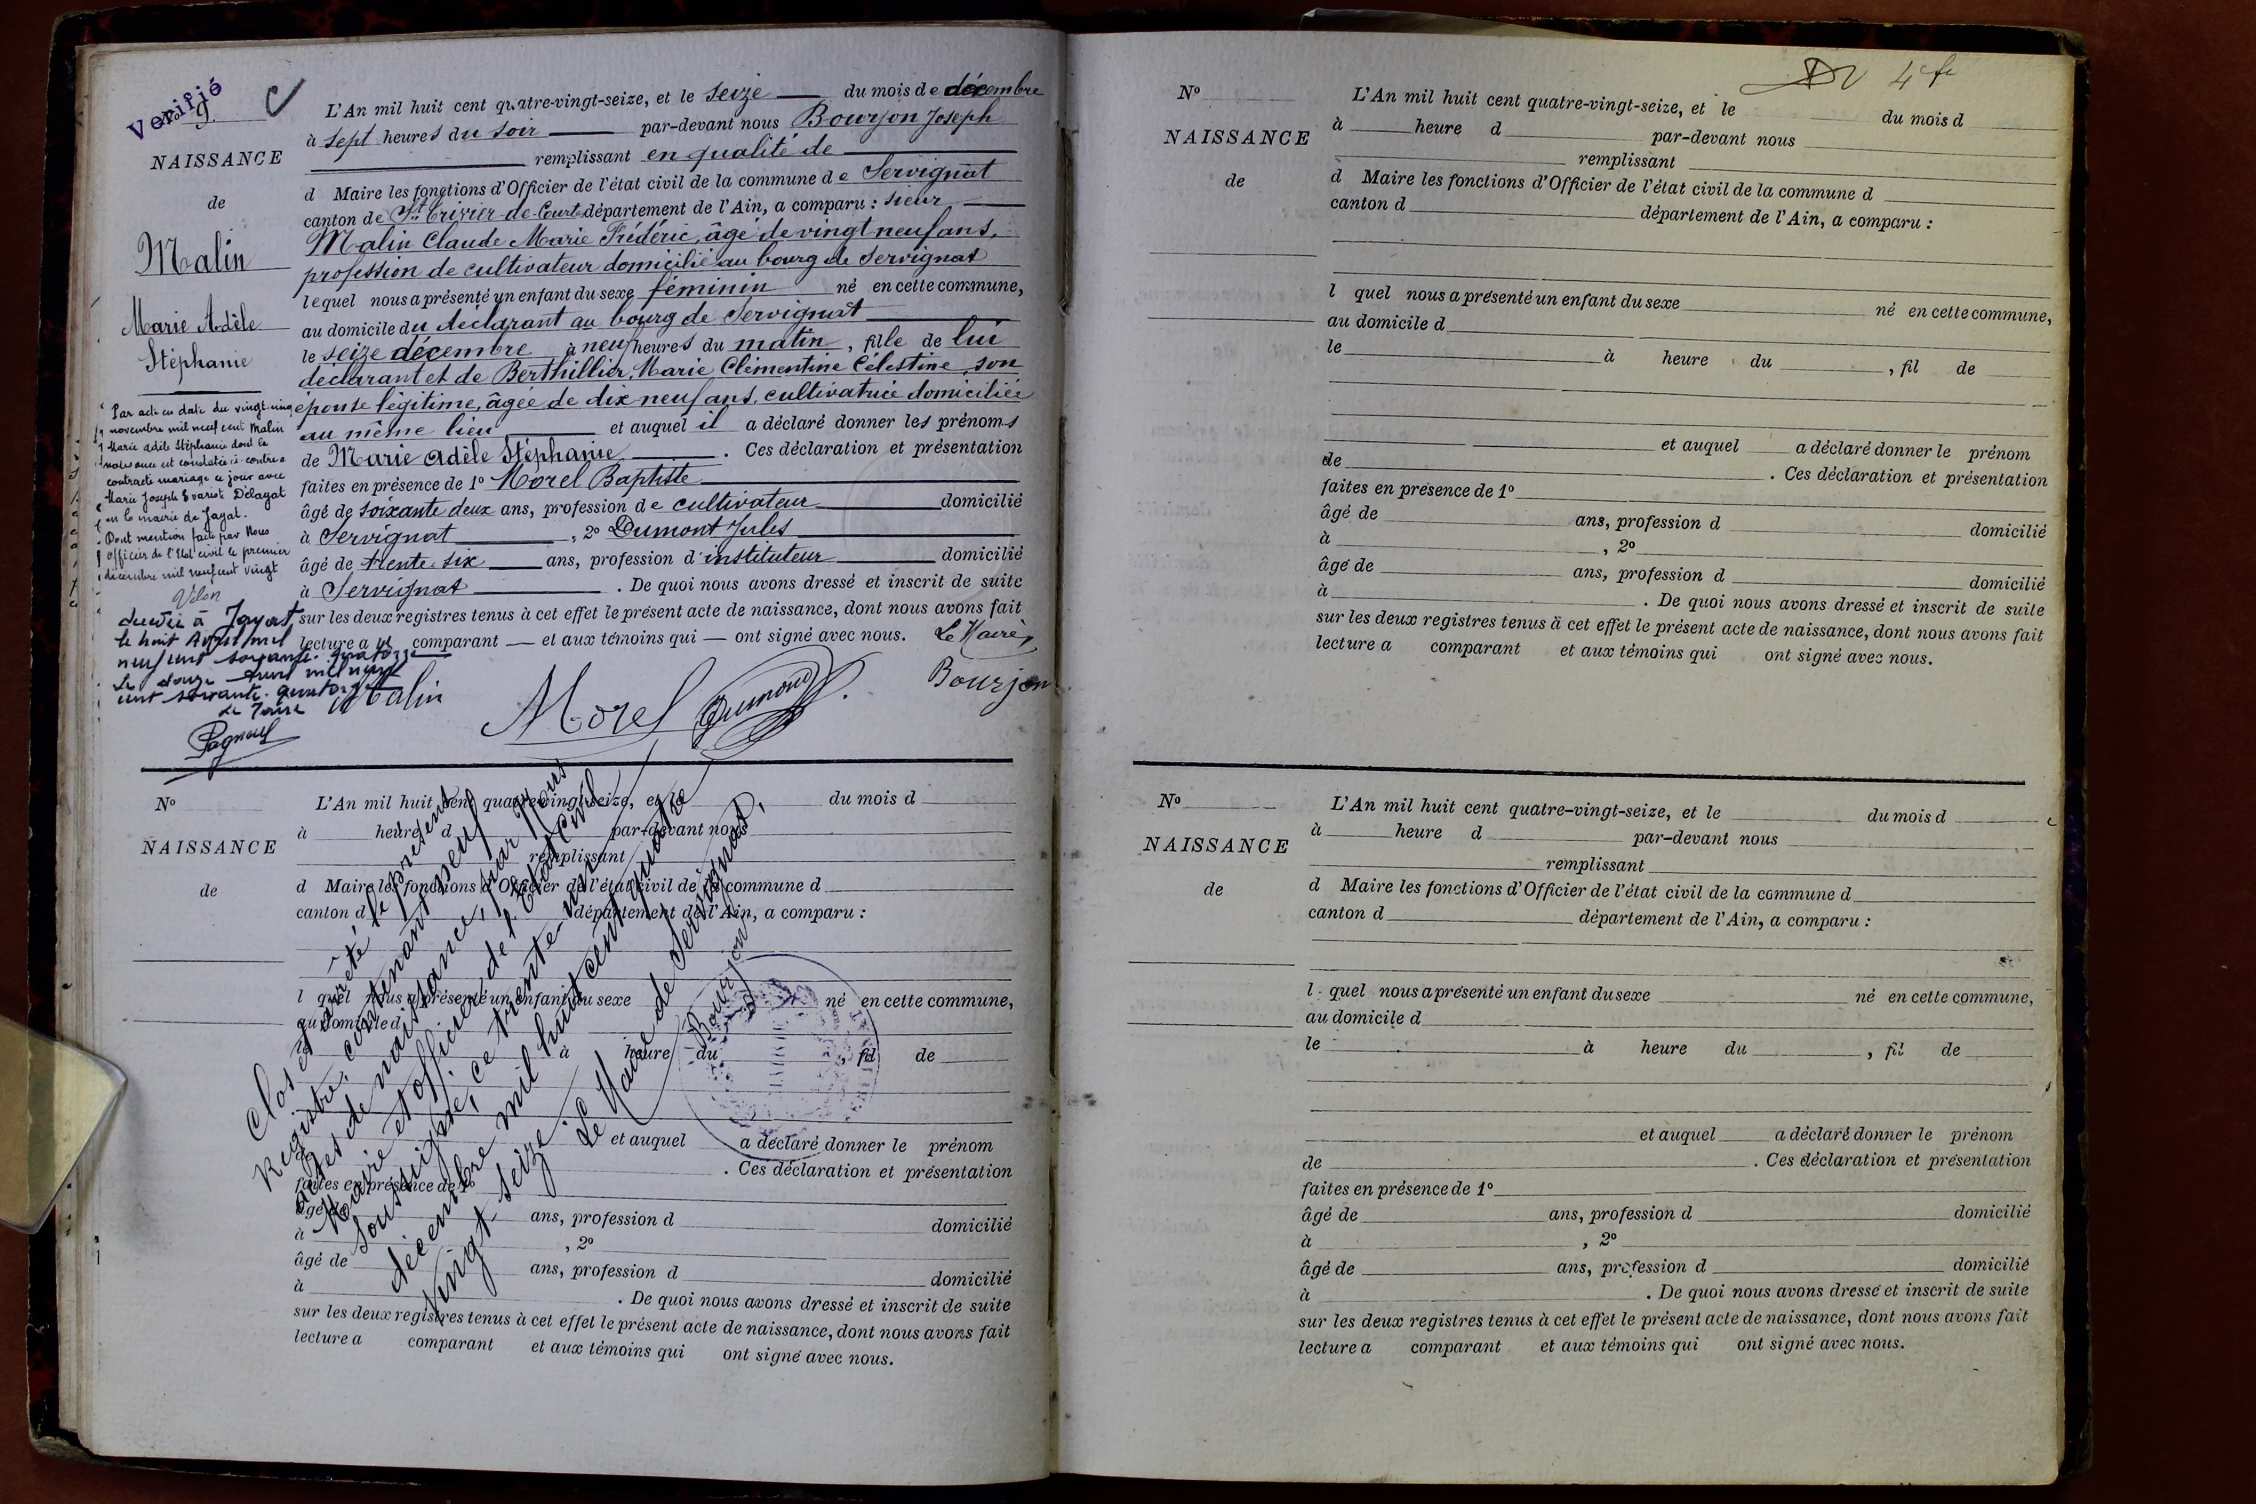 Verifié
9
L'An mil huit cent quatre-vingt-seize, et le seize du mois de décembre
à sept heures du soir par-devant nous Bourjon Joseph
NAISSANCE
remplissant en qualité de
d Maire les fonctions d'Officier de l'état civil de la commune de Servignat
de
canton de St Trivier-de-Courtes département de l'Ain, a comparu : sieur
Malin Claude Marie Fréderic, âgé de vingt neuf ans,
Malin
profession de cultivateur domicilié au bourg de Servignat
lequel nous a présenté un enfant du sexe féminin né en cette commune,
Marie Adèle
au domicile du déclarant au bourg de Servignat
Stéphanie
le seize décembre à neuf heures du matin, fille de lui
déclarant et de Berthillier, Marie Clémentine Célestine, son
épouse légitime, âgée de dix neuf ans, cultivatrice domiciliée
au même lieu et auquel il a déclaré donner les prénoms
de Marie Adèle Stéphanie. Ces déclaration et présentation
faites en présence de 1o Morel Baptiste
âgé de soixante deux ans, profession de cultivateur domicilié
à Servignat, 2o Dumont Jules
âgé de trente-six ans, profession d'instituteur domicilié
à Servignat. De quoi nous avons dressé et inscrit de suite
sur les deux registres tenus à cet effet le présent acte de naissance, dont nous avons fait
lecture au comparant et aux témoins qui ont signé avec nous. Le Maire,
Par acte en date du vingt-cinq
novembre mil neuf cent Malin
Marie Adèle Stéphanie dont la
naissance est constatée ci-contre a
contracté mariage ce jour avec
Marie Joseph Evariste Délagat
en la mairie de Jayat.
Dont mention faite par Nous
officier de l'Etat civil le premier
décembre mil neuf cent vingt
décédée à Jayat
le huit Avril mil
neuf cent soixante-quatorze
Le douze Avril mil neuf
cent soixante-quatorze
Le Maire
Malin
Morel
Dumont J.
Bourjon
No
L'An mil huit cent quatre-vingt-seize, et le du mois d
à heure d par-devant nous
NAISSANCE
remplissant
de
d Maire les fonctions d'Officier de l'état civil de la commune d
canton d département de l'Ain, a comparu :
l quel nous a présenté un enfant du sexe né en cette commune,
au domicile d
le à heure du , fil de
et auquel a déclaré donner le prénom
. Ces déclaration et présentation
faites en présence de 1o
âgé de ans, profession d domicilié
à , 2o
âgé de ans, profession d domicilié
à . De quoi nous avons dressé et inscrit de suite
sur les deux registres tenus à cet effet le présent acte de naissance, dont nous avons fait
lecture a comparant et aux témoins qui ont signé avec nous.
Clos et arrêté le présent
Registre, contenant neuf
actes de naissance, par Nous
Maire et officier de l'Etat Civil
soussigné, ce trente-un
décembre mil huit cent quatre
vingt-seize.
Le Maire de Servignat,
Bourjon
4e fe
No
L'An mil huit cent quatre-vingt-seize, et le du mois d
à heure d par-devant nous
NAISSANCE
remplissant
de
d Maire les fonctions d'Officier de l'état civil de la commune d
canton d département de l'Ain, a comparu :
l quel nous a présenté un enfant du sexe né en cette commune,
au domicile d
le à heure du , fil de
et auquel a déclaré donner le prénom
de . Ces déclaration et présentation
faites en présence de 1o
âgé de ans, profession d domicilié
à , 2o
âgé de ans, profession d domicilié
à . De quoi nous avons dressé et inscrit de suite
sur les deux registres tenus à cet effet le présent acte de naissance, dont nous avons fait
lecture a comparant et aux témoins qui ont signé avec nous.
No
L'An mil huit cent quatre-vingt-seize, et le du mois d
à heure d par-devant nous
NAISSANCE
remplissant
de
d Maire les fonctions d'Officier de l'état civil de la commune d
canton d département de l'Ain, a comparu :
l quel nous a présenté un enfant du sexe né en cette commune,
au domicile d
le à heure du , fil de
et auquel a déclaré donner le prénom
de . Ces déclaration et présentation
faites en présence de 1o
âgé de ans, profession d domicilié
à , 2o
âgé de ans, profession d domicilié
à . De quoi nous avons dressé et inscrit de suite
sur les deux registres tenus à cet effet le présent acte de naissance, dont nous avons fait
lecture a comparant et aux témoins qui ont signé avec nous.